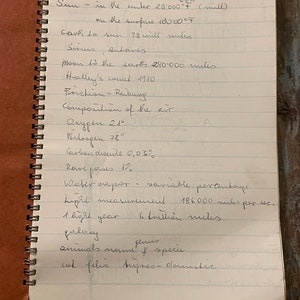 Sun - in the center 25000°F (mill)
on the surface 10000°F
earth to sun 93 mill miles
Sirius - Antares
Moon to the earth 240000 miles
Halley's comet 1910
Friction - Reibung
Composition of the air
Oxygen 21°
Nitrogen 78°
Carbon dioxide 0,03%
Rare gases 1%
Water vapor - variable percentage
Light measurement 186000 miles per sec.
1 light year 6 trillion miles
galaxy
genus
animals name & specie
cat felis - domestic